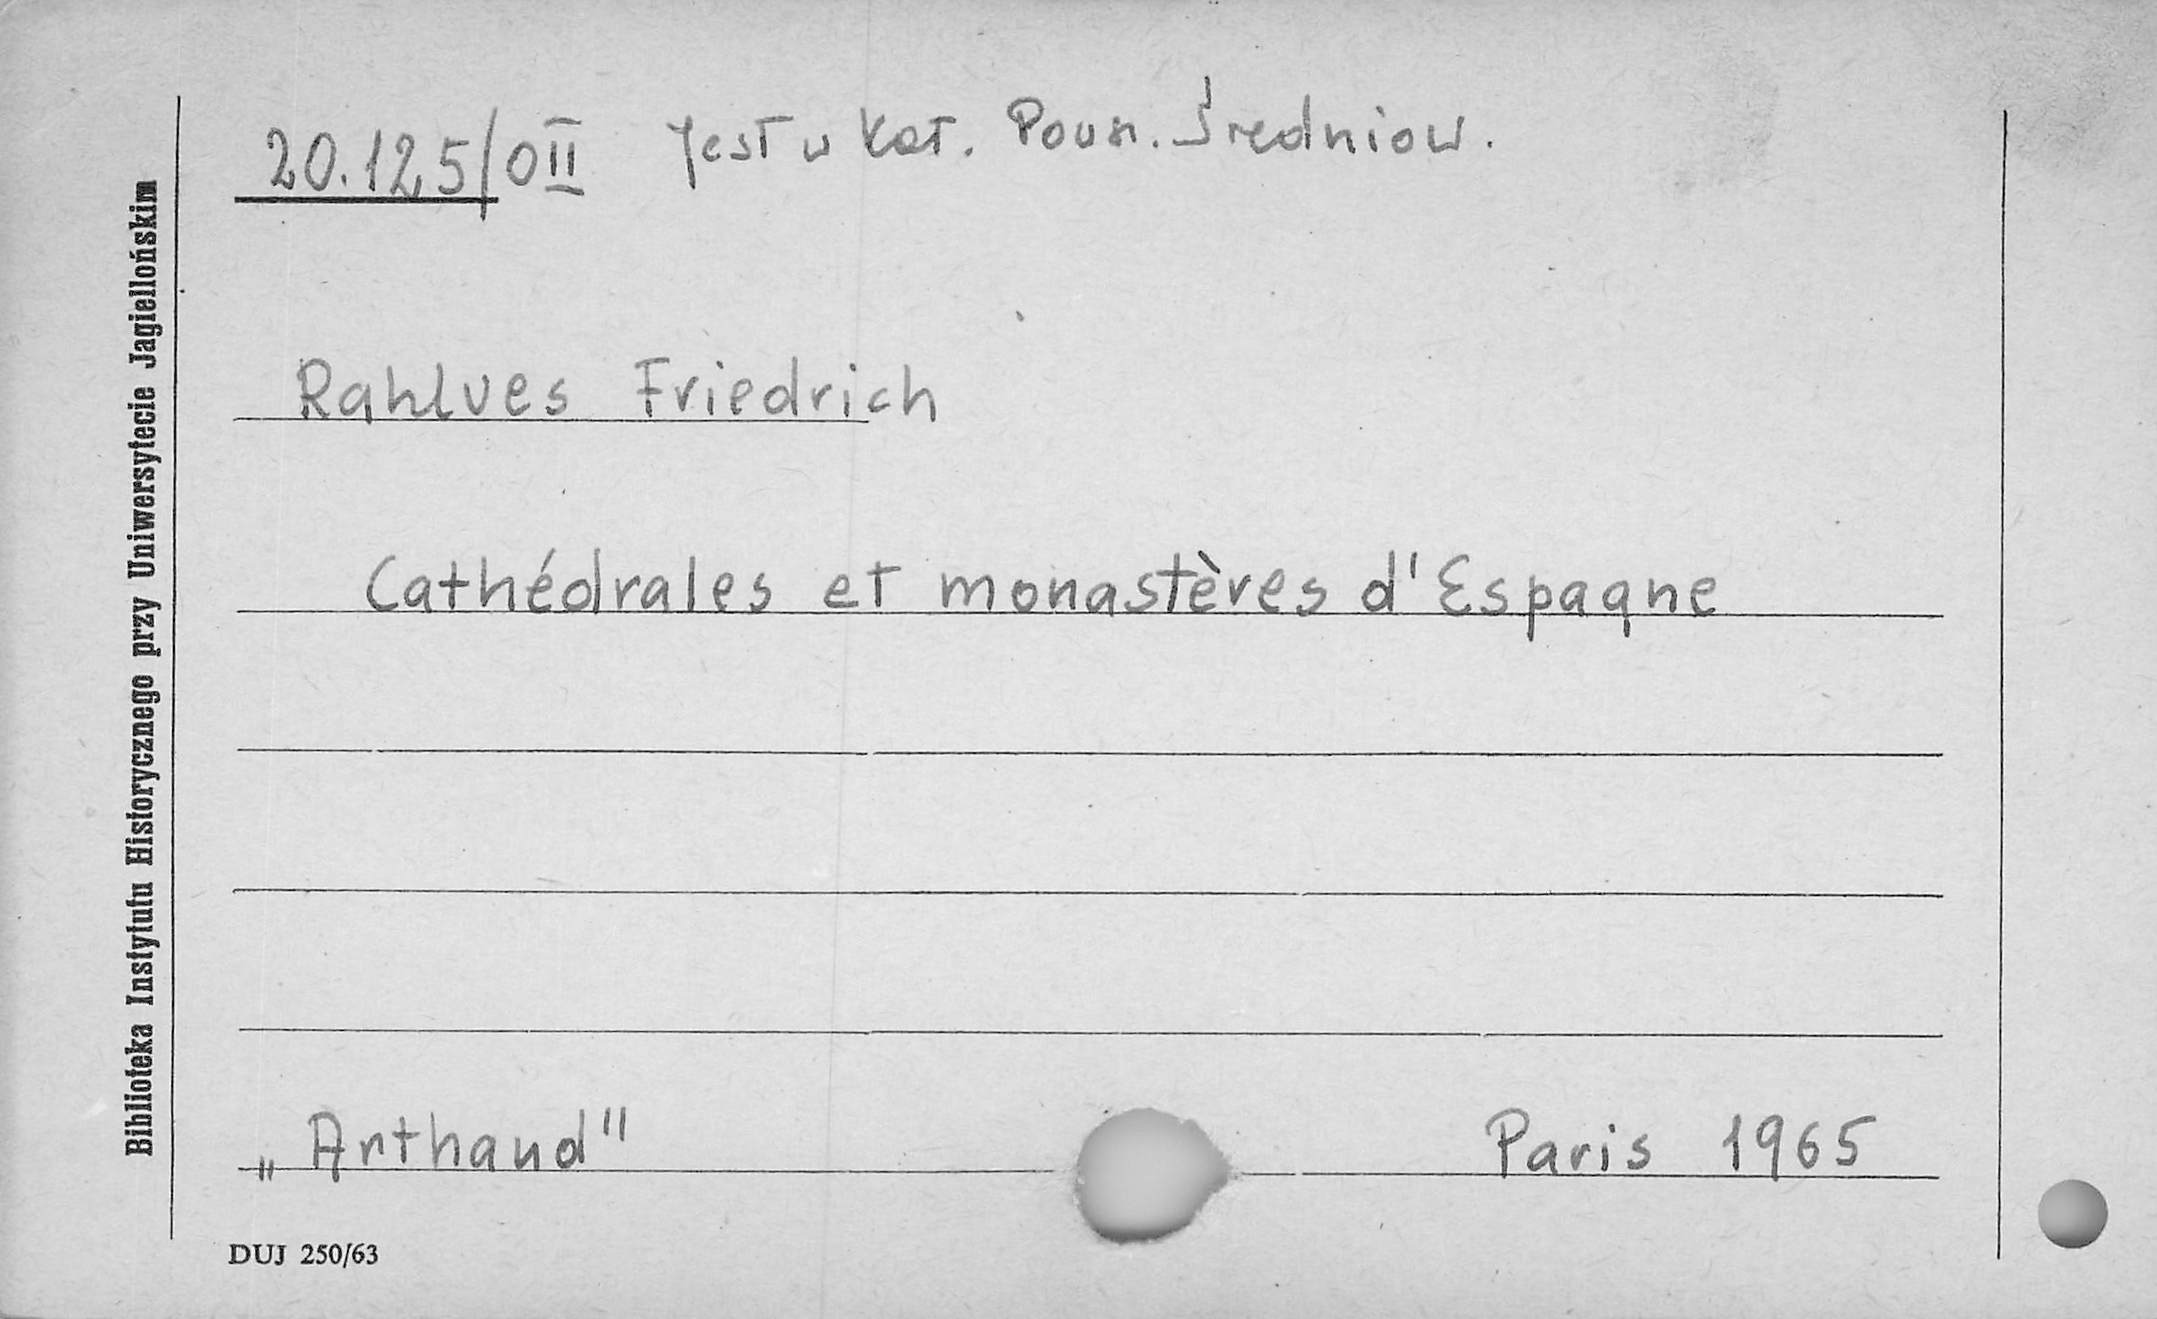 20.125/0II Jest w Kat. Pown. Średniow.
Rahlves Friedrich
Cathédrales et monastères d'Espagne
„Arthaud" Paris 1965
DUJ 250/63
Biblioteka Instytutu Historycznego przy Uniwersytecie Jagiellońskim